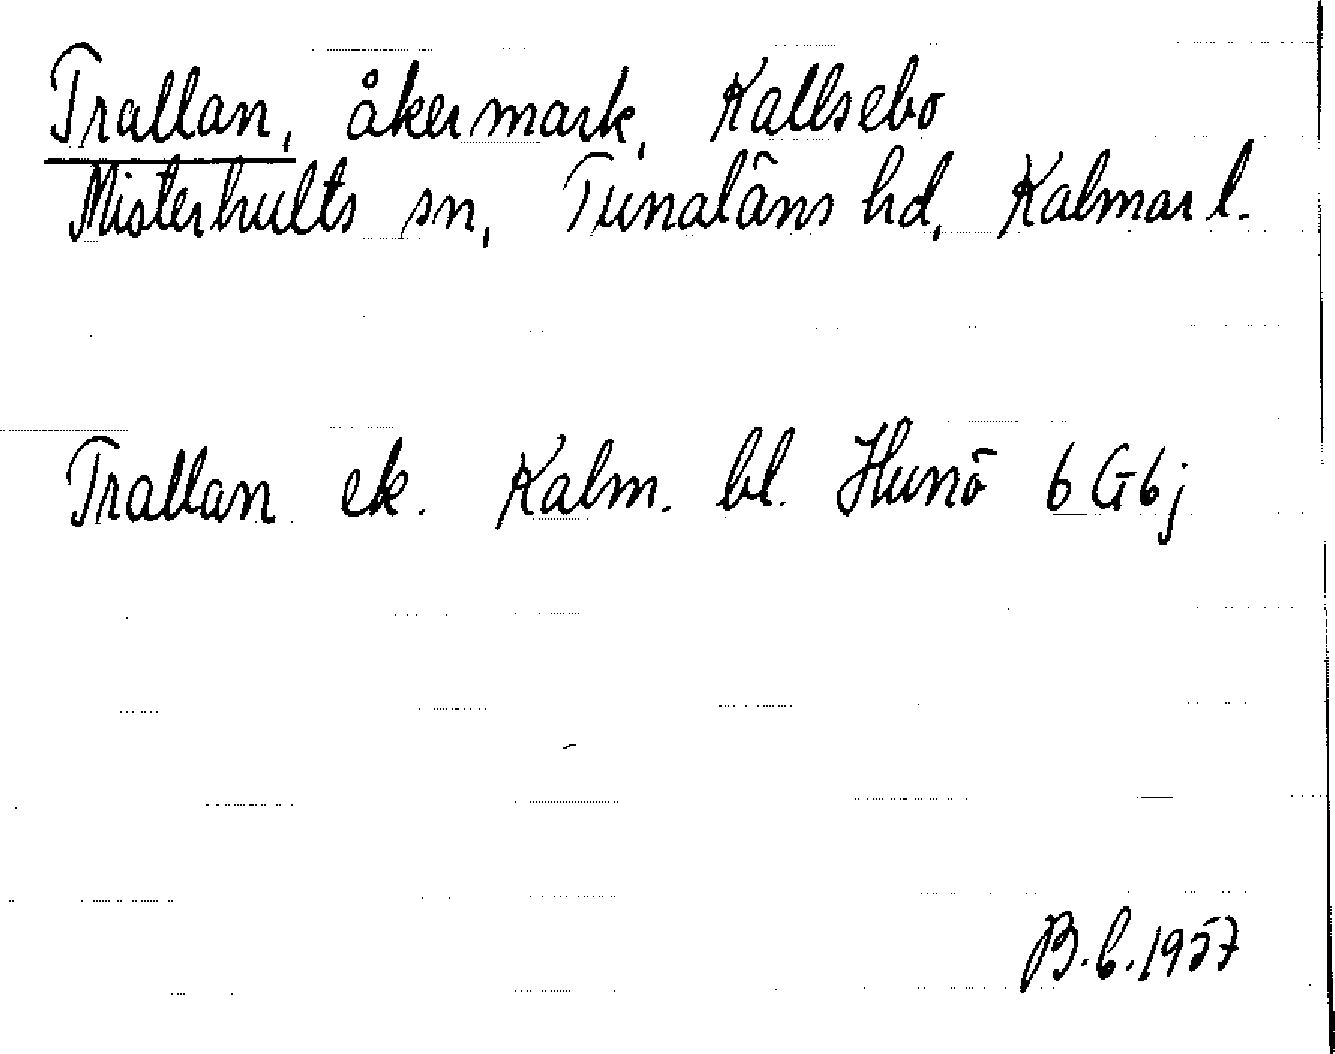 Trallan, åkermark, Kallsebo
Misterhults sn, Tunaläns hd, Kalmar l.
Trallan ek. Kalm. bl. Hunö 6 G 6 j
B.b. 1957